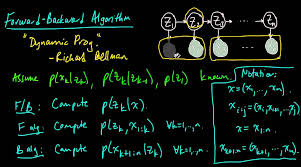 Forward-Backward Algorithm
"Dynamic Prog."
- Richard Bellman
z₁ → z₂ → z₃ → ... → zₙ
Assume p(xₖ|zₖ), p(zₖ|zₖ₋₁), p(z₁) known.
F/B: Compute p(zₖ|x).
F alg: Compute p(zₖ, x₁:ₖ) ∀k=1,...,n.
B alg: Compute p(xₖ₊₁:ₙ|zₖ) ∀k=1,...,n.
Notation:
x = (x₁,...,xₙ)
xᵢ:ⱼ = (xᵢ, xᵢ₊₁,...,xⱼ)
x = x₁:ₙ
xₖ₊₁:ₙ = (xₖ₊₁,...,xₙ)